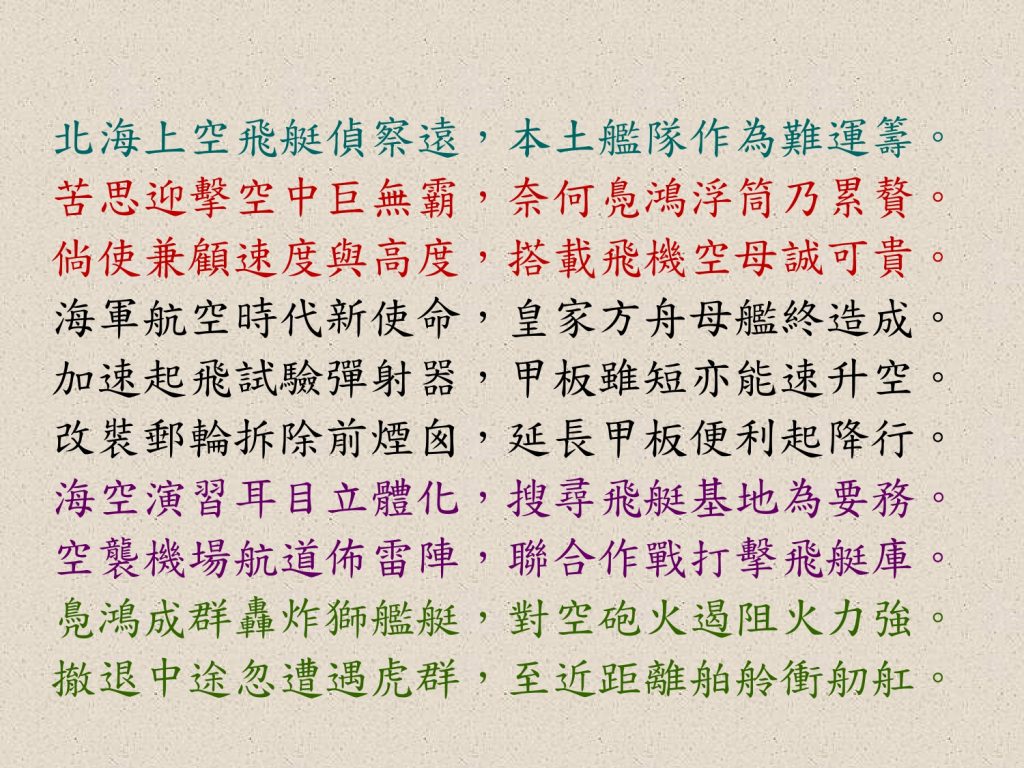 北海上空飛艇偵察遠，本土艦隊作為難運籌。
苦思迎擊空中巨無霸，奈何鳧鴻浮筒乃累贅。
倘使兼顧速度與高度，搭載飛機空母誠可貴。
海軍航空時代新使命，皇家方舟母艦終造成。
加速起飛試驗彈射器，甲板雖短亦能速升空。
改裝郵輪拆除前煙囪，延長甲板便利起降行。
海空演習耳目立體化，搜尋飛艇基地為要務。
空襲機場航道佈雷陣，聯合作戰打擊飛艇庫。
鳧鴻成群轟炸獅艦艇，對空砲火遏阻火力強。
撤退中途忽遭遇虎群，至近距離舶舲衝舠舡。